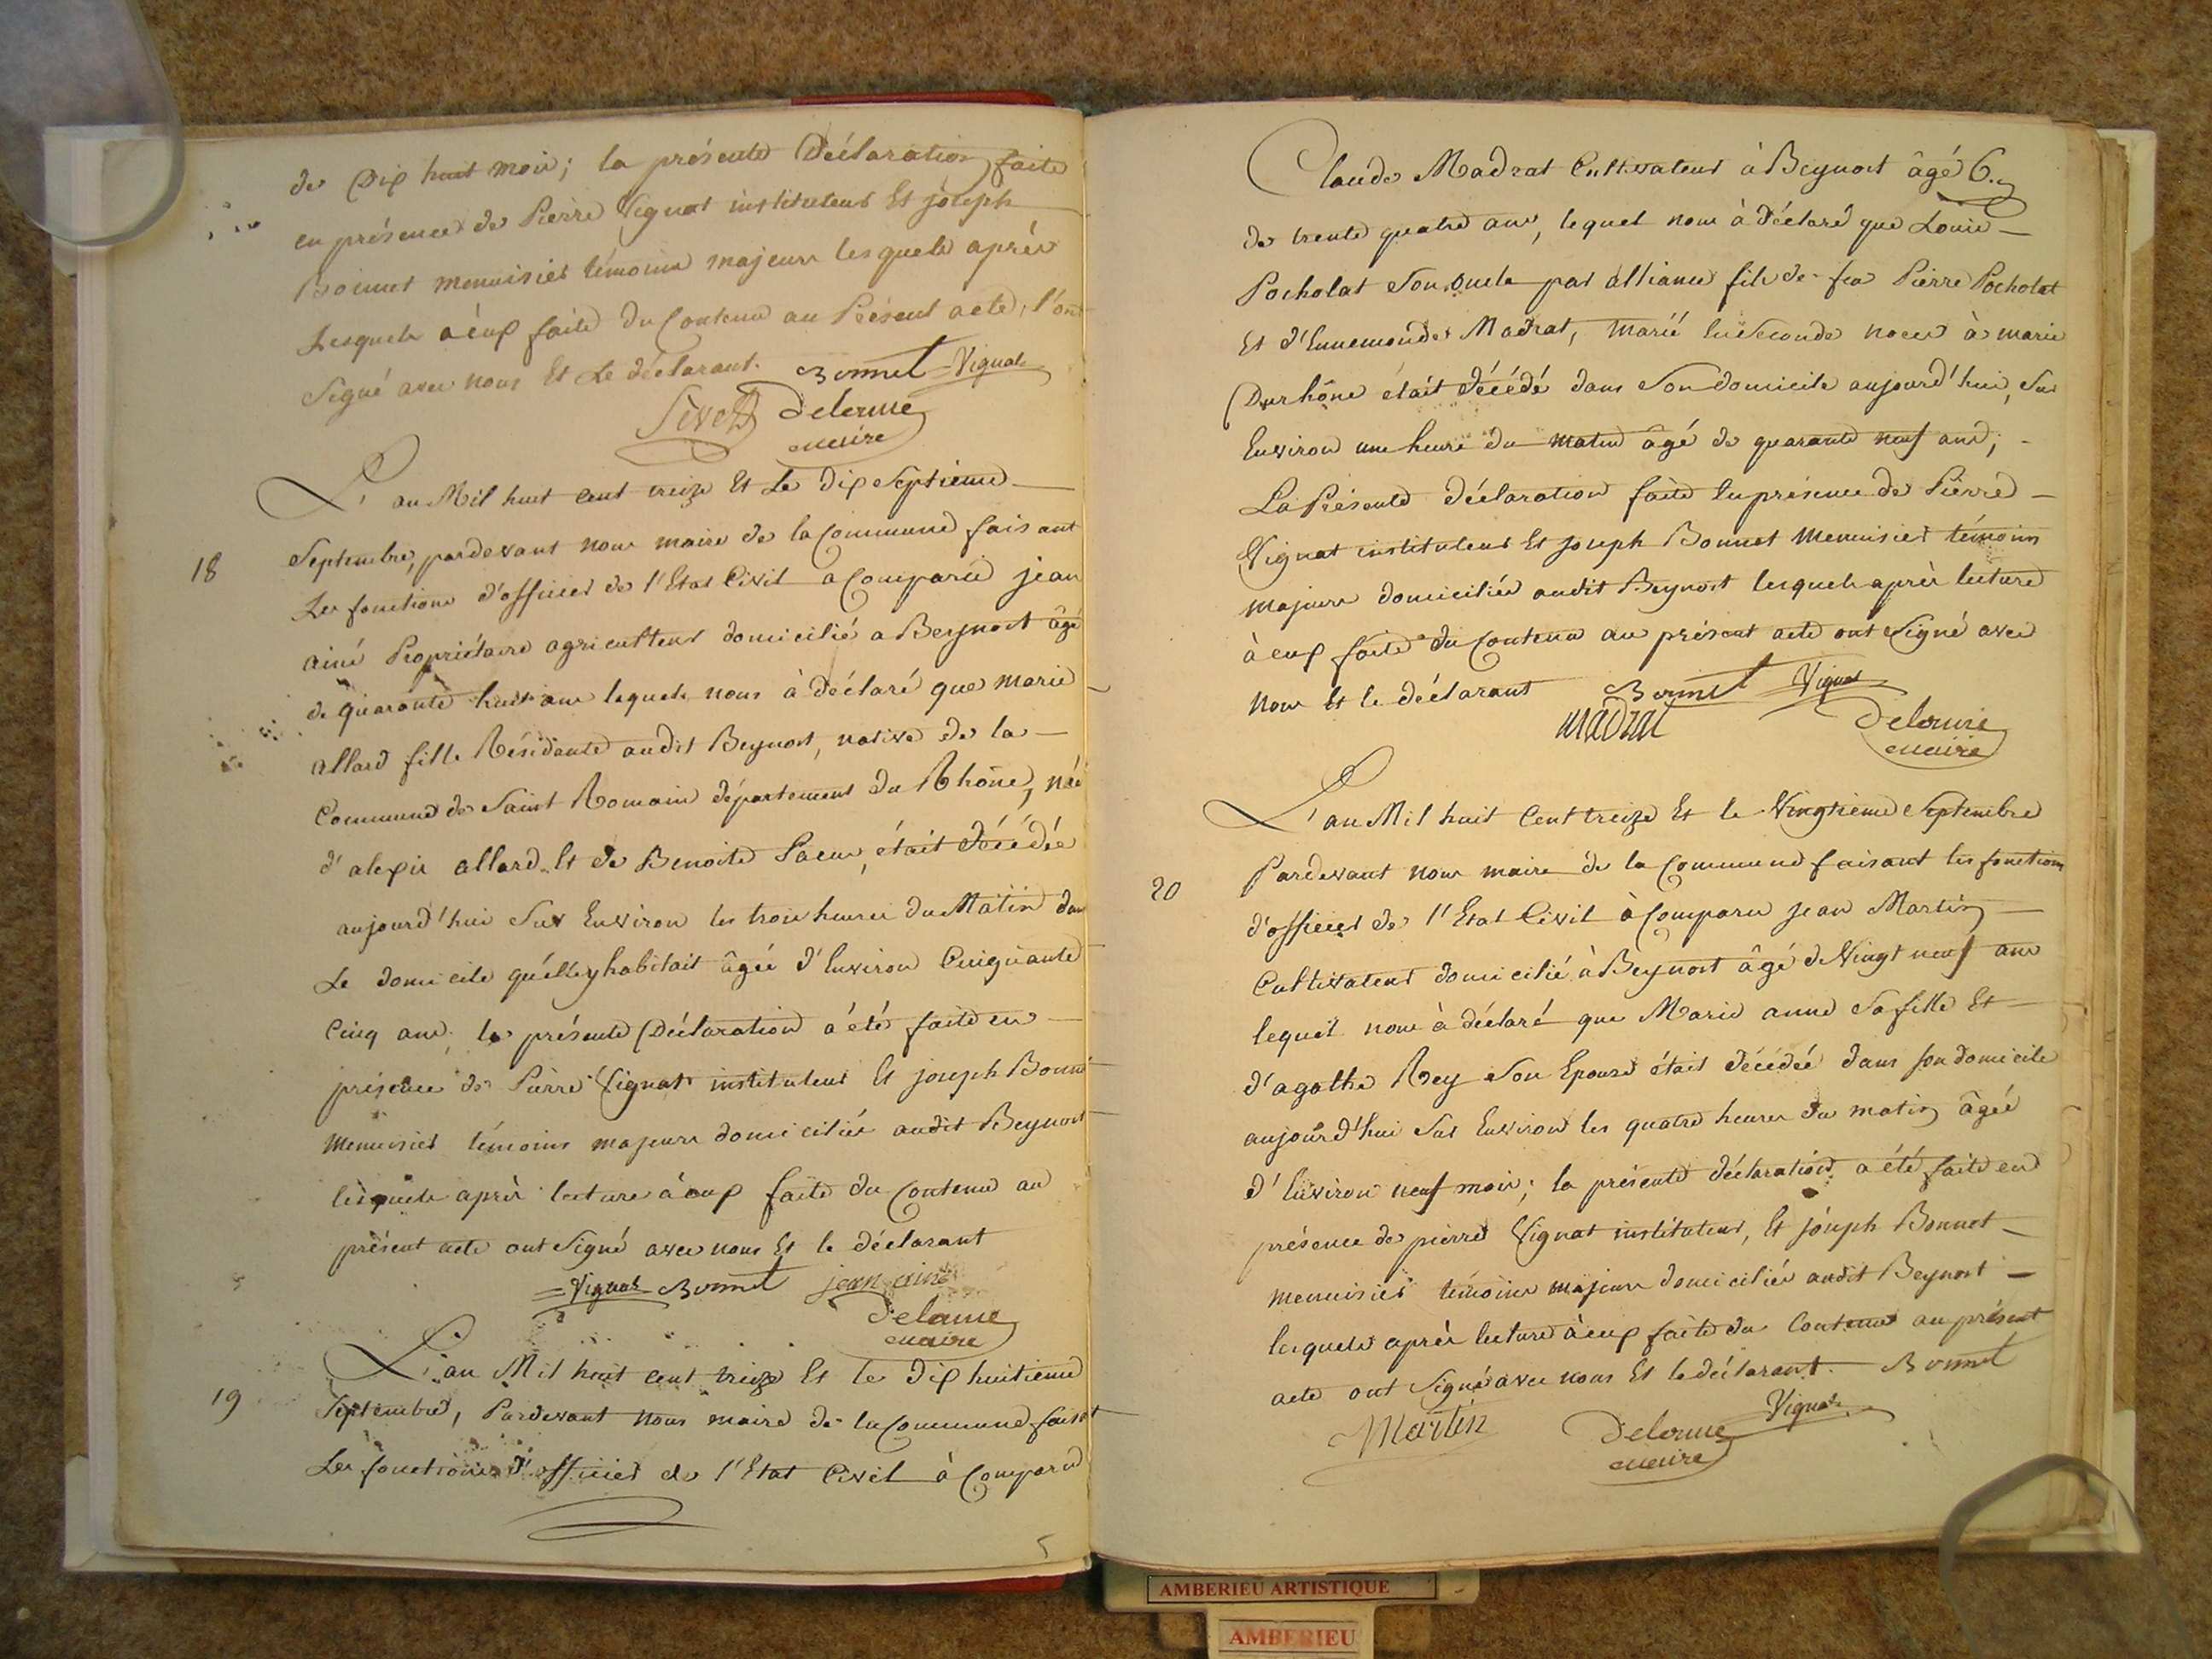 de Dix huit mois; la présente Déclaration faite
en présence de Pierre Vignat instituteur Et joseph
Bonnet menuisier témoins majeurs lesquels après
Lesquels à eux faite du Contenu au Présent acte, l'ont
Signé avec nous Et Le déclarant. Bonnet Vignat
Delorme
maire
18
L'an Mil huit cent treize Et Le dix Septieme
Septembre, pardevant nous maire de la Commune faisant
Les fonctions d'officier de l'Etat Civil a Comparû jean
ainé Propriétaire agriculteur domicilié a Beynost âgé
de quarante huit ans lequels nous à déclaré que marie
allard fille Résidante audit Beynost, native de la
Commune de Saint Romain département du Rhône, née
d'alexis allard Et de Benoite , était décédée
aujourd'hui Sur Environ les trois heures du Matin dans
Le domicile qu'elle y habitait âgée d'Environ Cinquante
Cinq ans, la présente Déclaration a été faite en
présence de Pierre Vignat instituteur Et joseph Bonnet
menuisier témoins majeurs domiciliés audit Beynost
lesquels après lecture à eux faite du Contenu au
présent acte ont Signé avec nous Et le déclarant
Vignat Bonnet jean ainé
Delorme
maire
19
L'an Mil huit cent treize Et le Dix huitieme
Septembre, Pardevant nous maire de la Commune faisant
Les fonctions d'officier de l'Etat Civil à Comparu
5
Claude Madrat Cultivateur à Beynost âgé 6.
de trente quatre ans, lequel nous à déclaré que Louis
Pocholat Son oncle par alliance fils de feu Pierre Pocholat
Et d'Ennemonde Madrat, marié En Seconde noces à marie
Durhône était décédé dans Son domicile aujourd'hui, Sur
Environ une heure du matin âgé de quarante neuf ans;
La Présente déclaration faite En présence de Pierre
Vignat instituteur Et joseph Bonnet menuisier témoins
majeurs domiciliés audit Beynost lesquels après lecture
à eux faite du Contenu au présent acte ont Signé avec
nous Et le déclarant Bonnet Vignat
madrat Delorme
maire
20
L'an Mil huit Cent treize Et le Vingtieme Septembre
Pardevant nous maire de la Commune faisant les fonctions
d'officier de l'Etat Civil à Comparu jean Martin
Cultivateur domicilié à Beynost âgé de Vingt neuf ans
lequel nous à déclaré que Marie anne Sa fille Et
d'agathe Rey Son Epouse était décédée dans son domicile
aujourd'hui Sur Environ les quatre heures du matin âgée
d'Environ neuf mois; la présente déclaration a été faite en
présence de pierre Vignat instituteur, Et joseph Bonnet
menuisier témoins majeurs domiciliés audit Beynost
lesquels après lecture à eux faite du Contenu au présent
acte ont Signé avec nous Et le déclarant. Bonnet
Martin Delorme Vignat
maire
AMBERIEU ARTISTIQUE
AMBERIEU